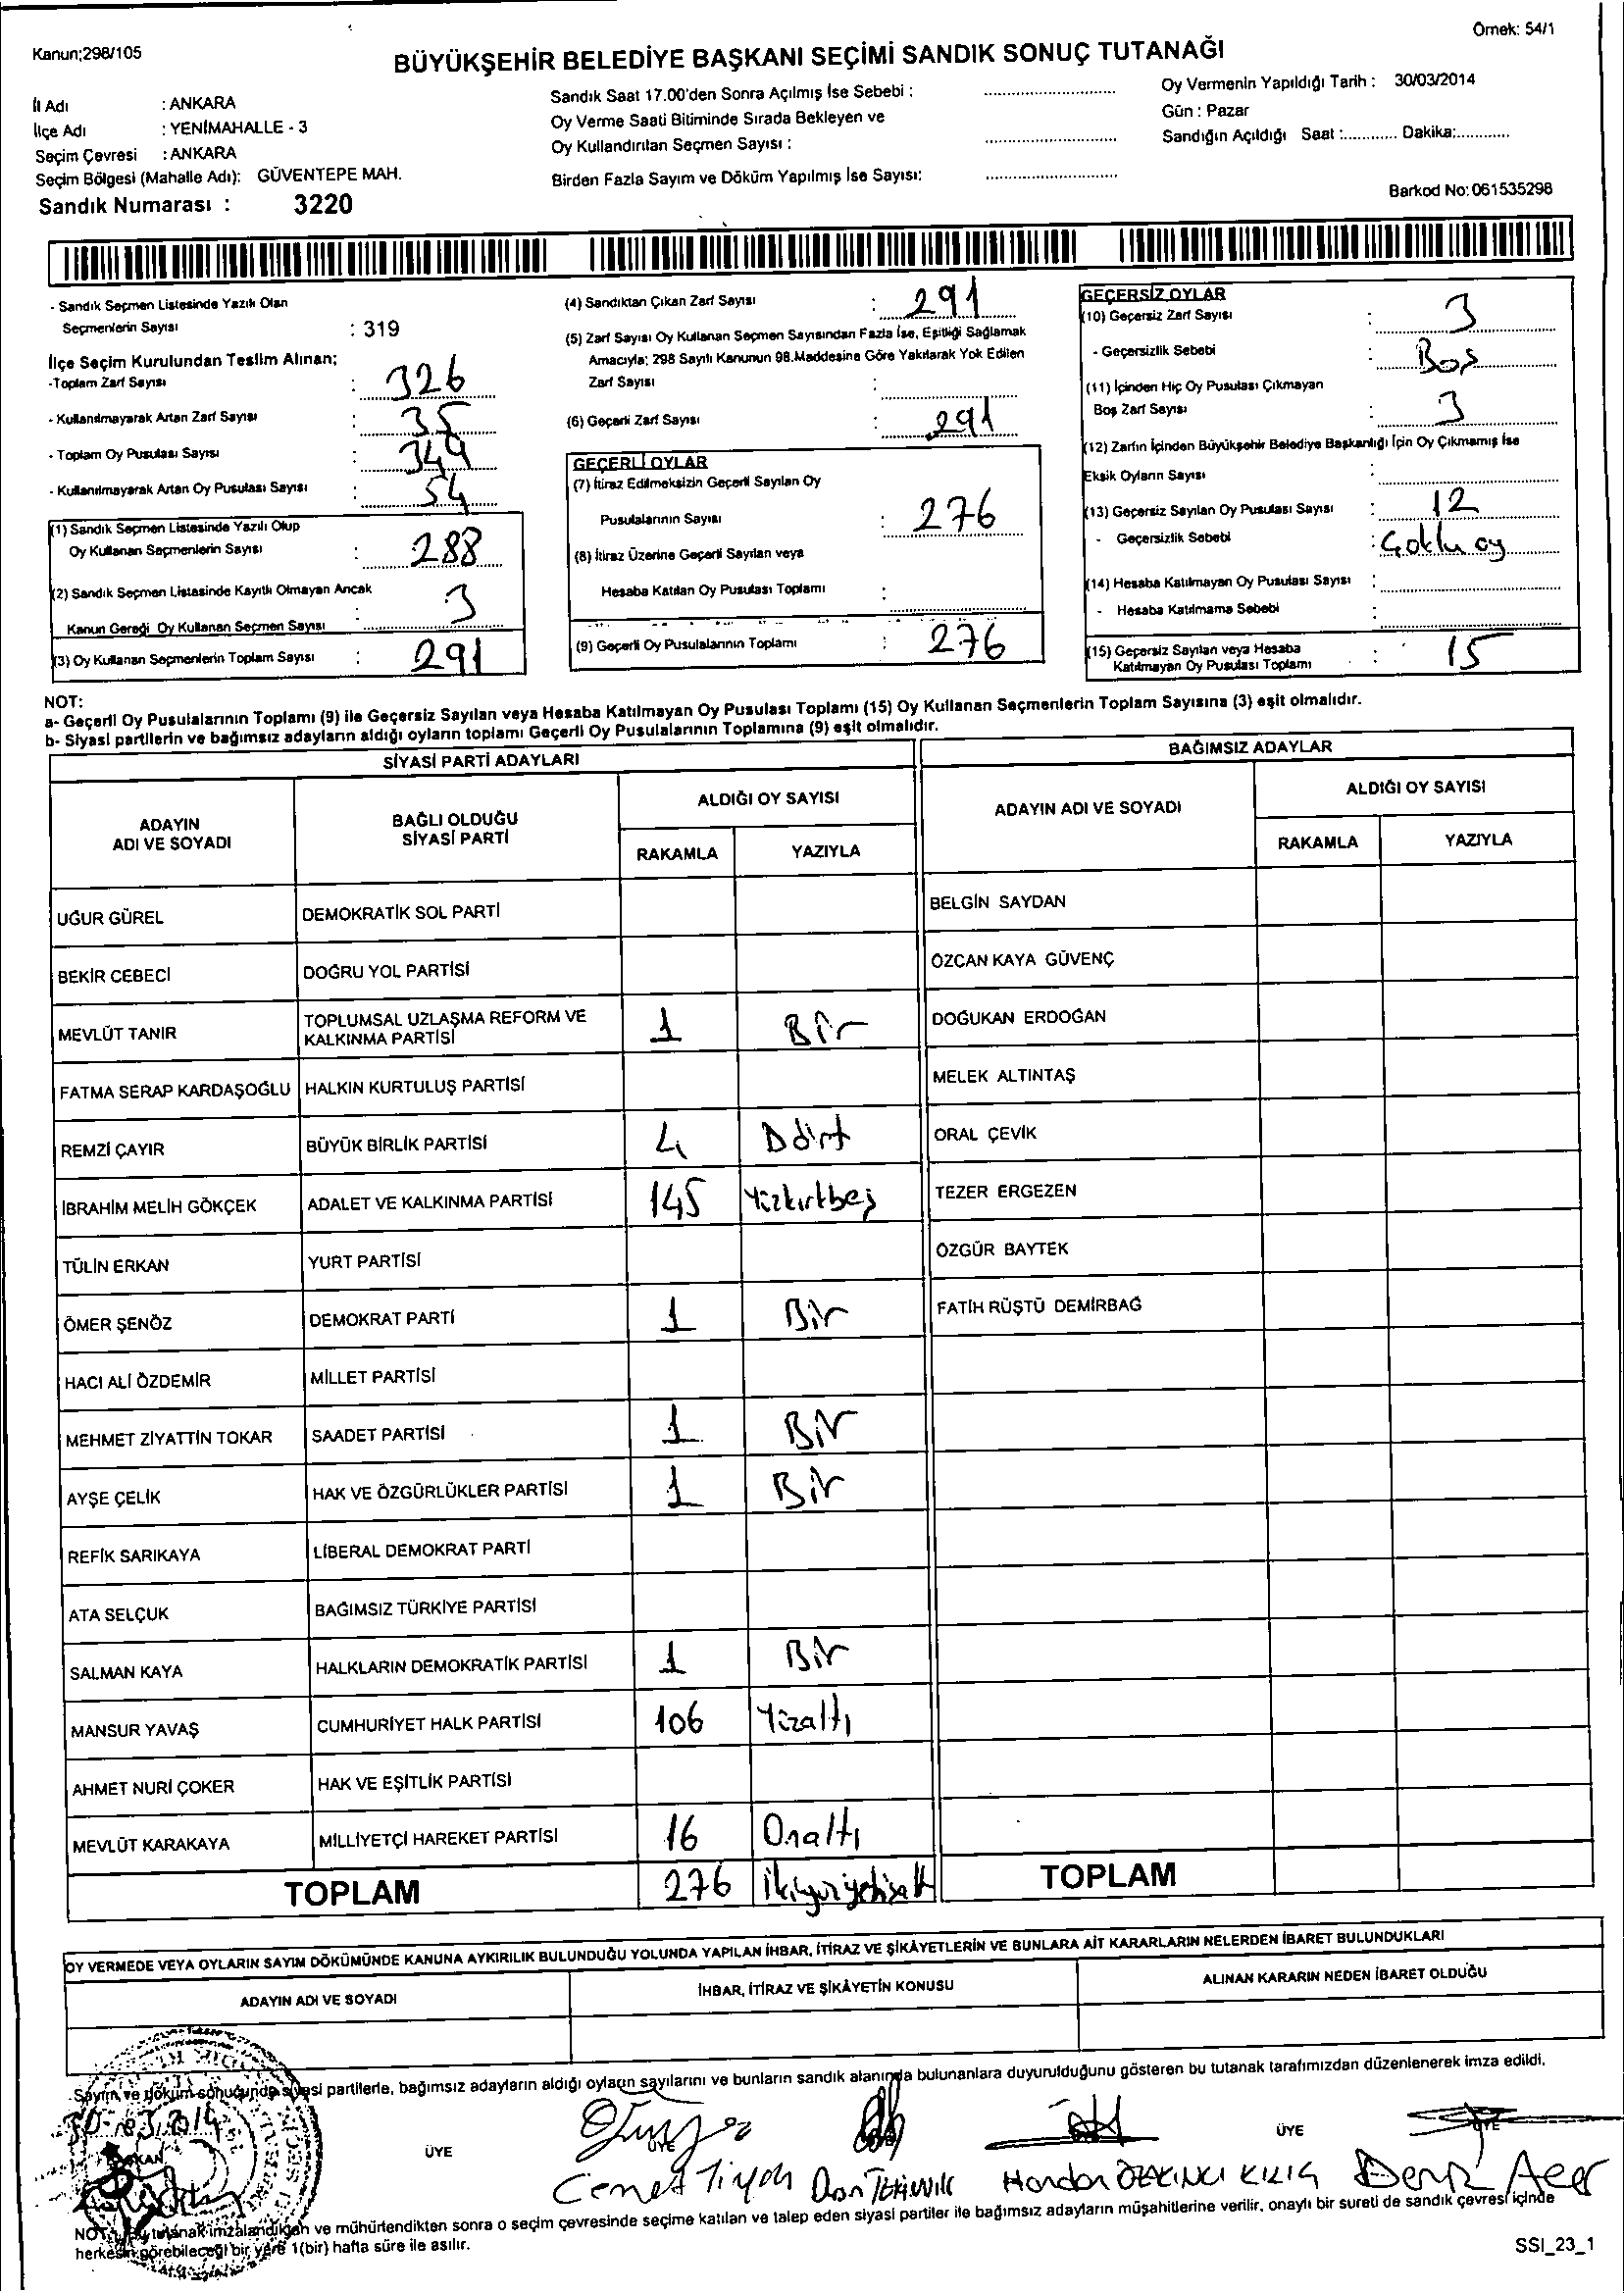 Örnek: 54/1
Kanun;298/105
BÜYÜKŞEHİR BELEDİYE BAŞKANI SEÇİMİ SANDIK SONUÇ TUTANAĞI
İl Adı : ANKARA
İlçe Adı : YENİMAHALLE - 3
Seçim Çevresi : ANKARA
Seçim Bölgesi (Mahalle Adı): GÜVENTEPE MAH.
Sandık Numarası : 3220
Sandık Saat 17.00'den Sonra Açılmış İse Sebebi :
Oy Verme Saati Bitiminde Sırada Bekleyen ve
Oy Kullandırılan Seçmen Sayısı :
Birden Fazla Sayım ve Döküm Yapılmış İse Sayısı:
Oy Vermenin Yapıldığı Tarih : 30/03/2014
Gün : Pazar
Sandığın Açıldığı Saat :............ Dakika:............
Barkod No: 061535298
- Sandık Seçmen Listesinde Yazılı Olan
Seçmenlerin Sayısı : 319
İlçe Seçim Kurulundan Teslim Alınan;
-Toplam Zarf Sayısı : 326
- Kullanılmayarak Artan Zarf Sayısı : 35
- Toplam Oy Pusulası Sayısı : 344
- Kullanılmayarak Artan Oy Pusulası Sayısı : 54
(1) Sandık Seçmen Listesinde Yazılı Olup
Oy Kullanan Seçmenlerin Sayısı : 288
(2) Sandık Seçmen Listesinde Kayıtlı Olmayan Ancak
Kanun Gereği Oy Kullanan Seçmen Sayısı : 3
(3) Oy Kullanan Seçmenlerin Toplam Sayısı : 291
(4) Sandıktan Çıkan Zarf Sayısı : 291
(5) Zarf Sayısı Oy Kullanan Seçmen Sayısından Fazla İse, Eşitliği Sağlamak
Amacıyla; 298 Sayılı Kanunun 98.Maddesine Göre Yakılarak Yok Edilen
Zarf Sayısı :
(6) Geçerli Zarf Sayısı : 291
GEÇERLİ OYLAR
(7) İtiraz Edilmeksizin Geçerli Sayılan Oy
Pusulalarının Sayısı : 276
(8) İtiraz Üzerine Geçerli Sayılan veya
Hesaba Katılan Oy Pusulası Toplamı :
(9) Geçerli Oy Pusulalarının Toplamı : 276
GEÇERSİZ OYLAR
(10) Geçersiz Zarf Sayısı : 3
- Geçersizlik Sebebi : Boş
(11) İçinden Hiç Oy Pusulası Çıkmayan
Boş Zarf Sayısı : 3
(12) Zarfın İçinden Büyükşehir Belediye Başkanlığı İçin Oy Çıkmamış İse
Eksik Oyların Sayısı :
(13) Geçersiz Sayılan Oy Pusulası Sayısı : 12
- Geçersizlik Sebebi : Çoklu oy
(14) Hesaba Katılmayan Oy Pusulası Sayısı :
- Hesaba Katılmama Sebebi :
(15) Geçersiz Sayılan veya Hesaba
Katılmayan Oy Pusulası Toplamı : 15
NOT:
a- Geçerli Oy Pusulalarının Toplamı (9) ile Geçersiz Sayılan veya Hesaba Katılmayan Oy Pusulası Toplamı (15) Oy Kullanan Seçmenlerin Toplam Sayısına (3) eşit olmalıdır.
b- Siyasi partilerin ve bağımsız adayların aldığı oyların toplamı Geçerli Oy Pusulalarının Toplamına (9) eşit olmalıdır.
SİYASİ PARTİ ADAYLARI
ADAYIN
ADI VE SOYADI
BAĞLI OLDUĞU
SİYASİ PARTİ
ALDIĞI OY SAYISI
RAKAMLA YAZIYLA
UĞUR GÜREL DEMOKRATİK SOL PARTİ
BEKİR CEBECİ DOĞRU YOL PARTİSİ
MEVLÜT TANIR TOPLUMSAL UZLAŞMA REFORM VE
KALKINMA PARTİSİ 1 Bir
FATMA SERAP KARDAŞOĞLU HALKIN KURTULUŞ PARTİSİ
REMZİ ÇAYIR BÜYÜK BİRLİK PARTİSİ 4 Dört
İBRAHİM MELİH GÖKÇEK ADALET VE KALKINMA PARTİSİ 145 Yüzkırkbeş
TÜLİN ERKAN YURT PARTİSİ
ÖMER ŞENÖZ DEMOKRAT PARTİ 1 Bir
HACI ALİ ÖZDEMİR MİLLET PARTİSİ
MEHMET ZİYATTİN TOKAR SAADET PARTİSİ 1 Bir
AYŞE ÇELİK HAK VE ÖZGÜRLÜKLER PARTİSİ 1 Bir
REFİK SARIKAYA LİBERAL DEMOKRAT PARTİ
ATA SELÇUK BAĞIMSIZ TÜRKİYE PARTİSİ
SALMAN KAYA HALKLARIN DEMOKRATİK PARTİSİ 1 Bir
MANSUR YAVAŞ CUMHURİYET HALK PARTİSİ 106 Yüzaltı
AHMET NURİ ÇOKER HAK VE EŞİTLİK PARTİSİ
MEVLÜT KARAKAYA MİLLİYETÇİ HAREKET PARTİSİ 16 Onaltı
TOPLAM 276 İkiyüzyetmişaltı
BAĞIMSIZ ADAYLAR
ADAYIN ADI VE SOYADI
ALDIĞI OY SAYISI
RAKAMLA YAZIYLA
BELGİN SAYDAN
ÖZCAN KAYA GÜVENÇ
DOĞUKAN ERDOĞAN
MELEK ALTINTAŞ
ORAL ÇEVİK
TEZER ERGEZEN
ÖZGÜR BAYTEK
FATİH RÜŞTÜ DEMİRBAĞ
TOPLAM
OY VERMEDE VEYA OYLARIN SAYIM DÖKÜMÜNDE KANUNA AYKIRILIK BULUNDUĞU YOLUNDA YAPILAN İHBAR, İTİRAZ VE ŞİKÂYETLERİN VE BUNLARA AİT KARARLARIN NELERDEN İBARET BULUNDUKLARI
ADAYIN ADI VE SOYADI
İHBAR, İTİRAZ VE ŞİKÂYETİN KONUSU
ALINAN KARARIN NEDEN İBARET OLDUĞU
Sayım ve döküm sonucunda siyasi partilerle, bağımsız adayların aldığı oyların sayılarını ve bunların sandık alanında bulunanlara duyurulduğunu gösteren bu tutanak tarafımızdan düzenlenerek imza edildi.
30.03.2014
BAŞKAN ÜYE ÜYE ÜYE ÜYE
Deniz Acer
NOT: Bu tutanak imzalandıktan ve mühürlendikten sonra o seçim çevresinde seçime katılan ve talep eden siyasi partiler ile bağımsız adayların müşahitlerine verilir, onaylı bir sureti de sandık çevresi içinde
herkesin görebileceği bir yere 1(bir) hafta süre ile asılır.
SSI_23_1